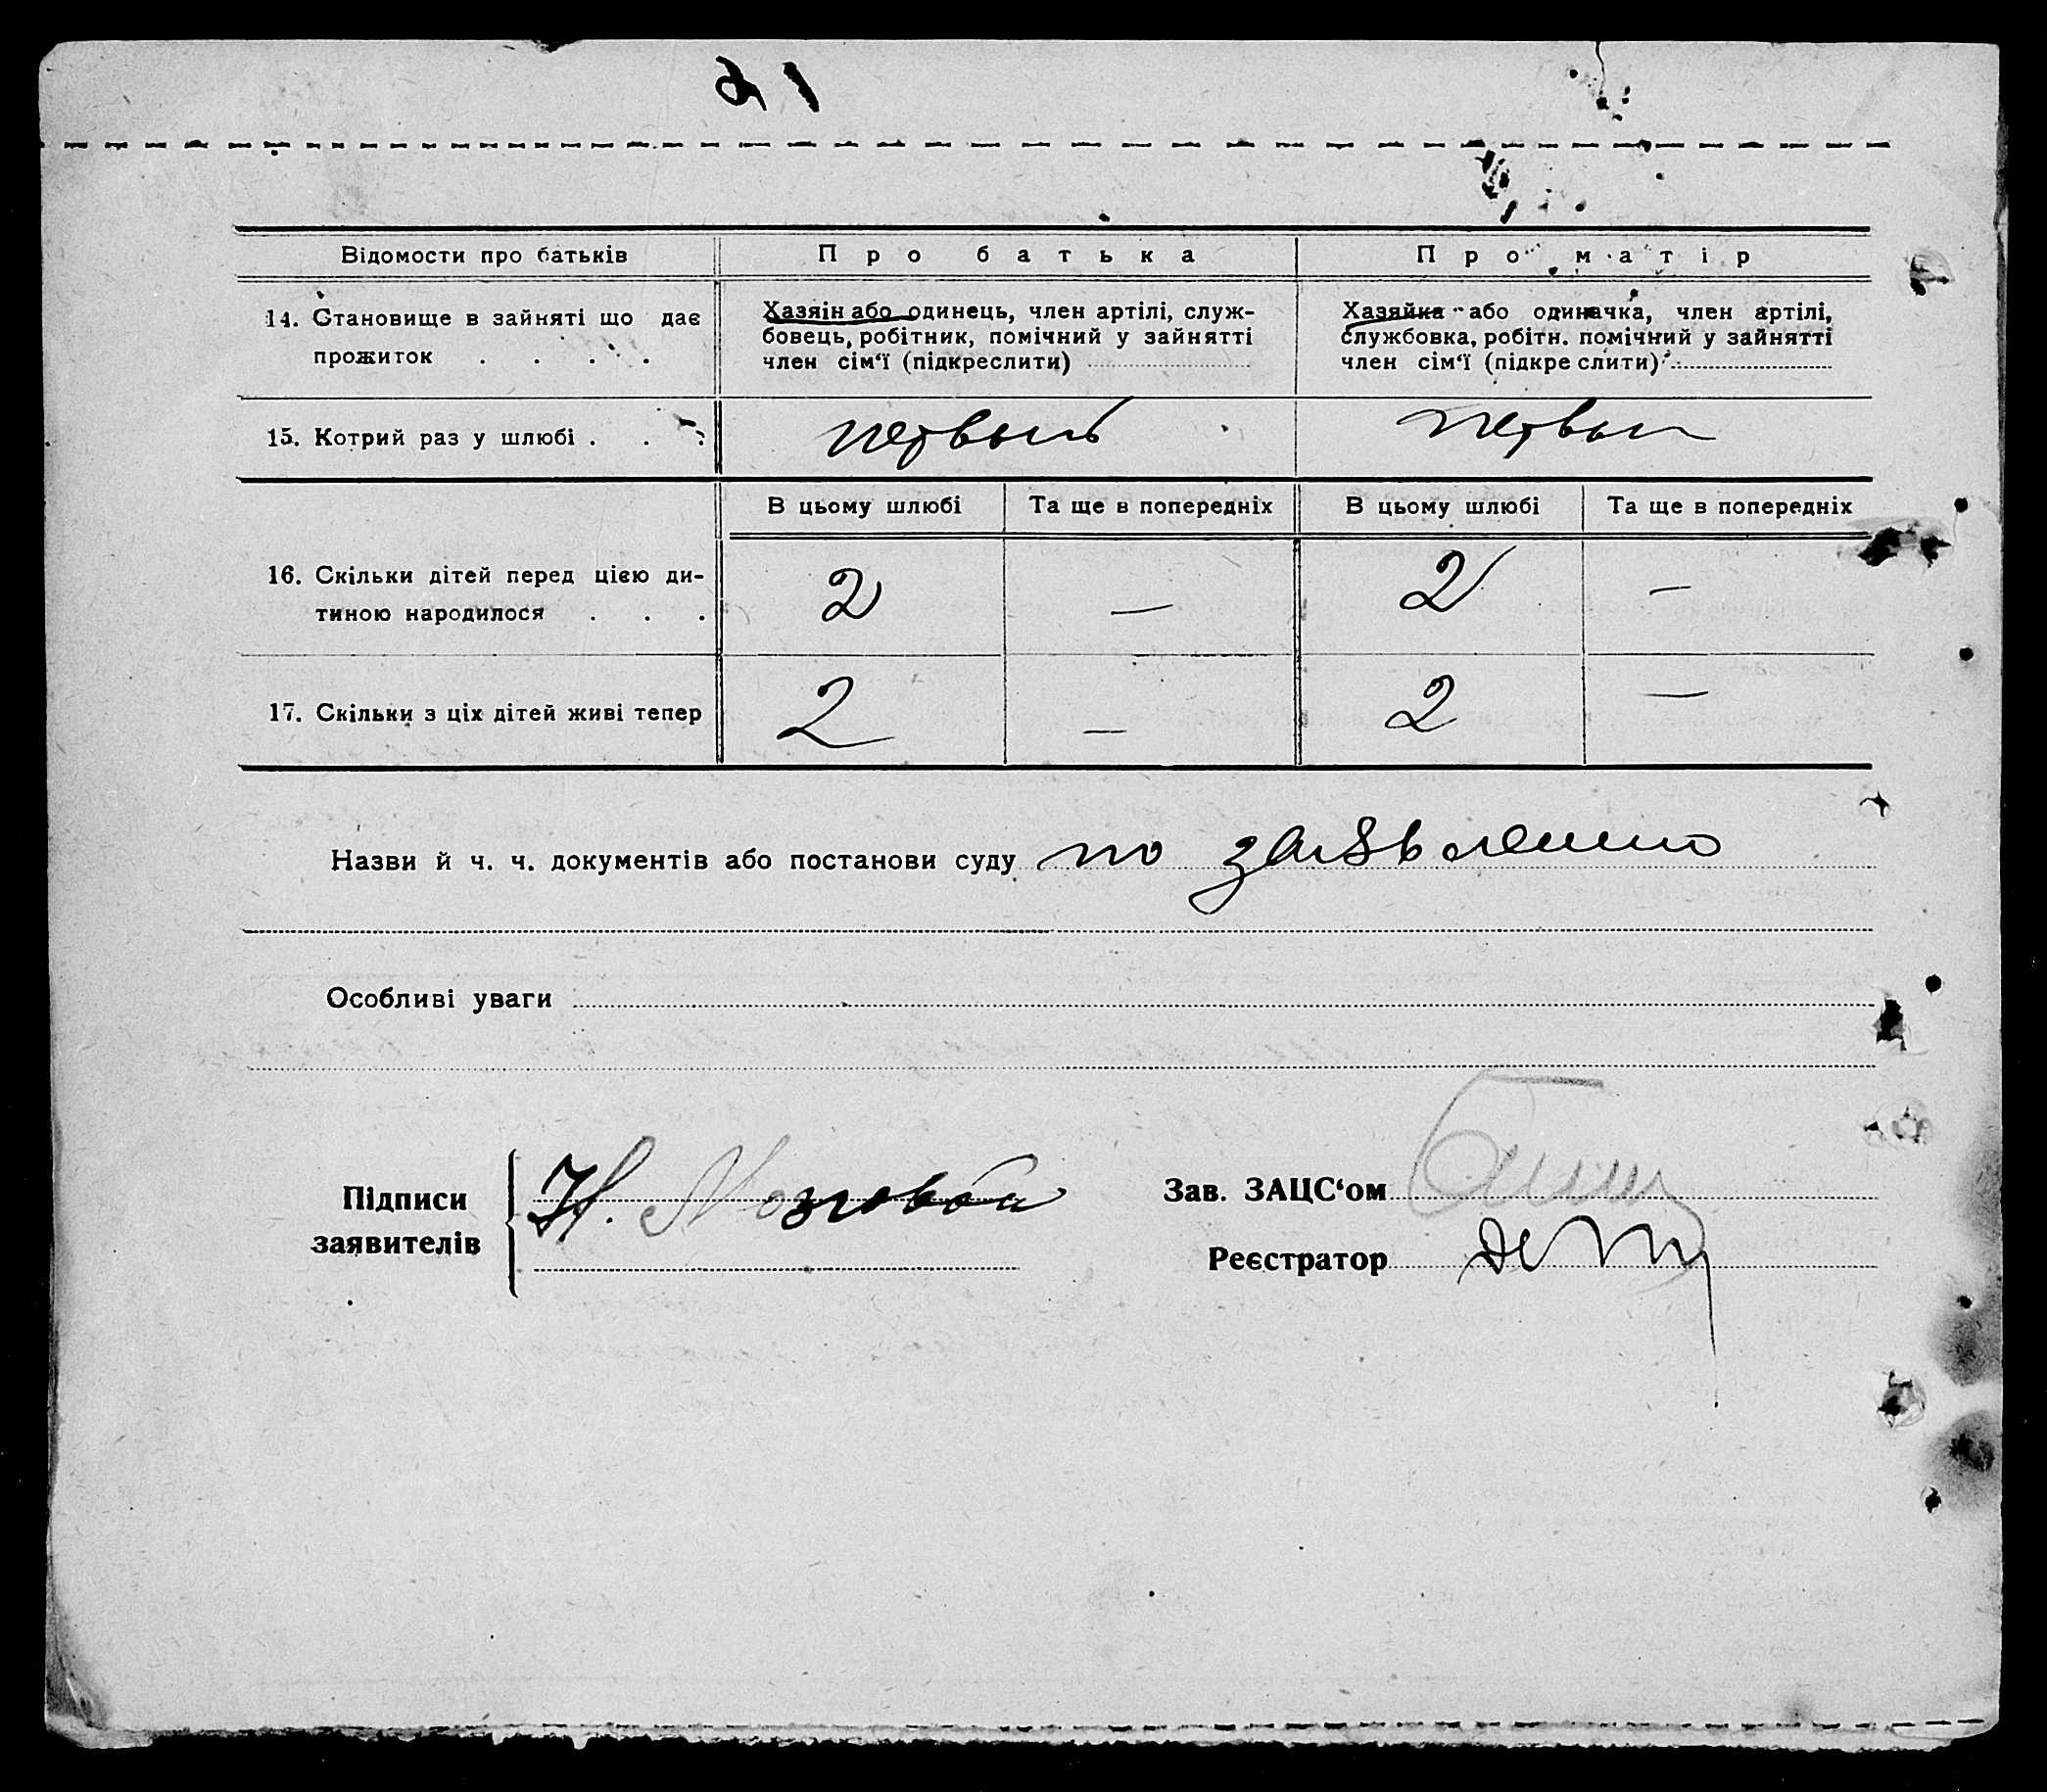 Відомости про батьків Про батька Про матір
14. Становище в зайняті що дає прожиток . . . .
Хазяін або одинець, член артілі, служ-
бовець, робітник, помічний у зайнятті
член сім‘ї (підкреслити)
Хазяйка або одиначка, член артілі,
службовка, робітн. помічний у зайнятті
член сім‘ї (підкре слити)
15. Котрий раз у шлюбі . . . первый первый
В цьому шлюбі Та ще в попередніх В цьому шлюбі Та ще в попередніх
16. Скільки дітей перед цією ди-
тиною народилося . . . 2 — 2 —
17. Скільки з ціх дітей живі тепер 2 — 2 —
Назви й ч. ч. документів або постанови суду по заявлению
Особливі уваги
Підписи
заявителів
Н. Мозговой
Зав. ЗАЦС‘ом
Реєстратор